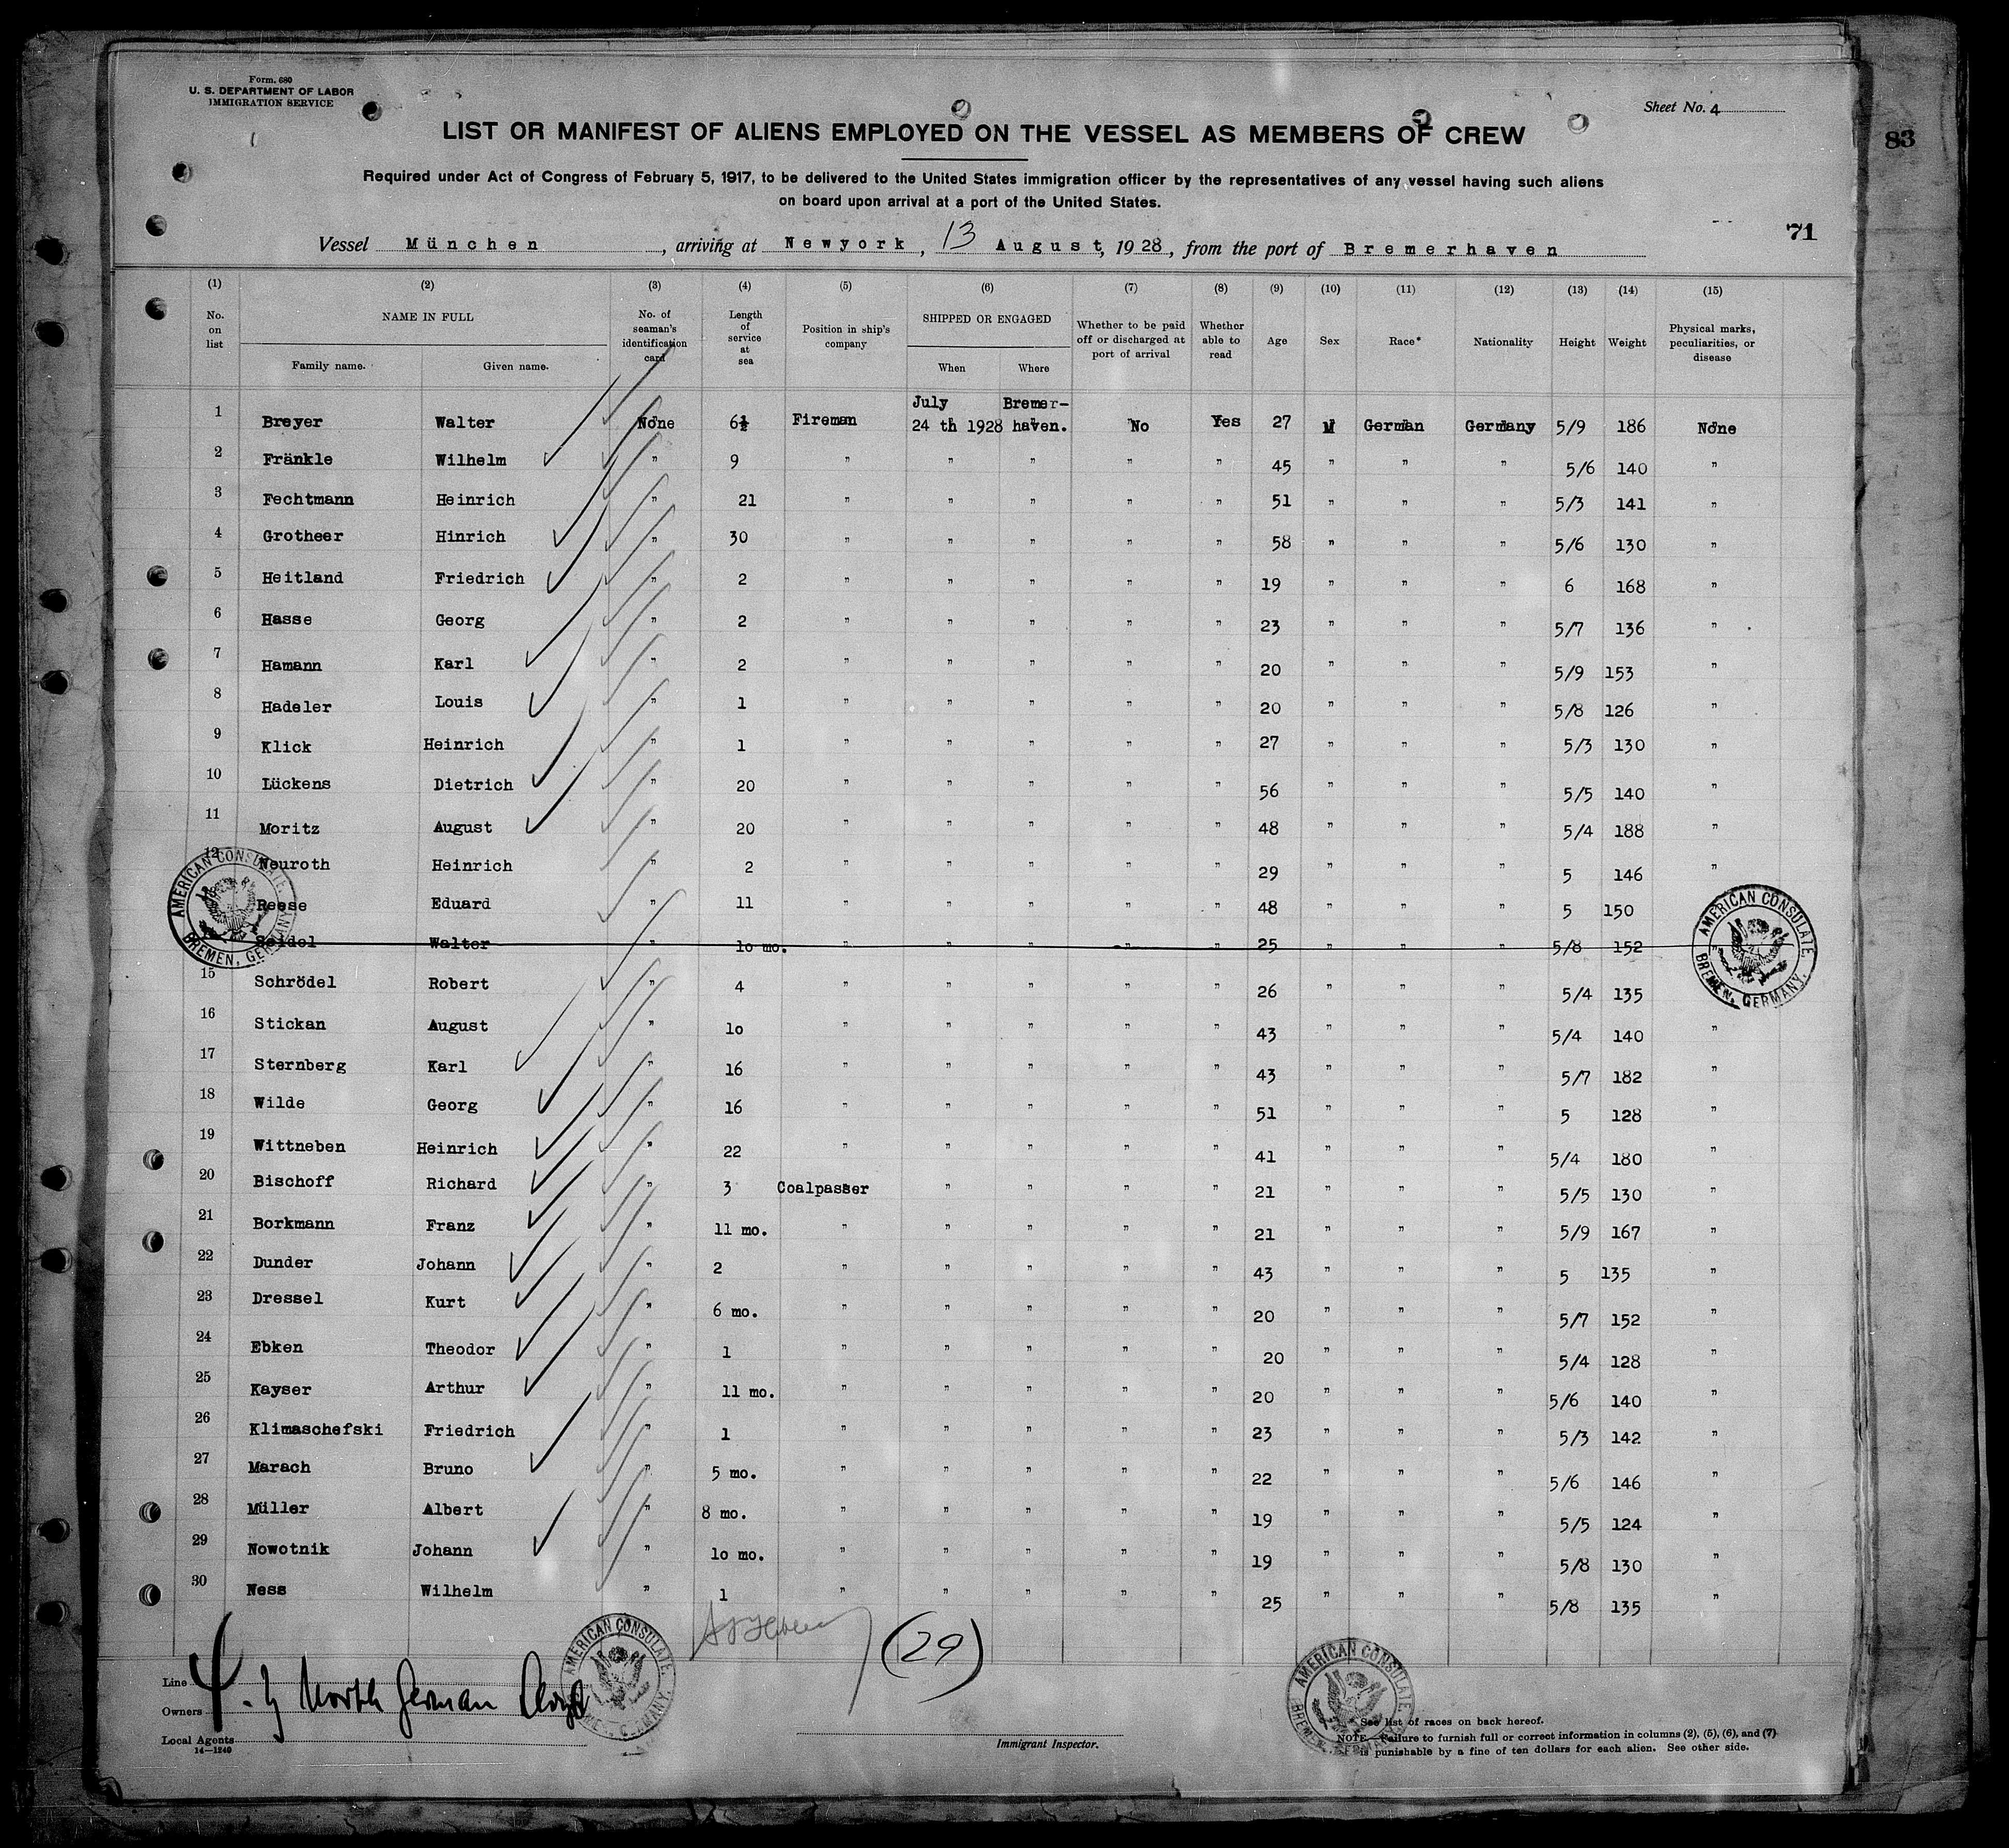 Form. 680
U. S. DEPARTMENT OF LABOR
IMMIGRATION SERVICE
Sheet No. 4
83
LIST OR MANIFEST OF ALIENS EMPLOYED ON THE VESSEL AS MEMBERS OF CREW
Required under Act of Congress of February 5, 1917, to be delivered to the United States immigration officer by the representatives of any vessel having such aliens
on board upon arrival at a port of the United States.
71
Vessel München, arriving at Newyork, 13 August, 1928, from the port of Bremerhaven
(1) (2) (3) (4) (5) (6) (7) (8) (9) (10) (11) (12) (13) (14) (15)
No. on list NAME IN FULL Family name. Given name. No. of seaman's identification card Length of service at sea Position in ship's company SHIPPED OR ENGAGED When Where Whether to be paid off or discharged at port of arrival Whether able to read Age Sex Race* Nationality Height Weight Physical marks, peculiarities, or disease
1 Breyer Walter None 6½ Fireman July 24 th 1928 Bremer-haven. No Yes 27 M German Germany 5/9 186 None
2 Fränkle Wilhelm " 9 " " " " " 45 " " " 5/6 140 "
3 Fechtmann Heinrich " 21 " " " " " 51 " " " 5/3 141 "
4 Grotheer Hinrich " 30 " " " " " 58 " " " 5/6 130 "
5 Heitland Friedrich " 2 " " " " " 19 " " " 6 168 "
6 Hasse Georg " 2 " " " " " 23 " " " 5/7 136 "
7 Hamann Karl " 2 " " " " " 20 " " " 5/9 153 "
8 Hadeler Louis " 1 " " " " " 20 " " " 5/8 126 "
9 Klick Heinrich " 1 " " " " " 27 " " " 5/3 130 "
10 Lückens Dietrich " 20 " " " " " 56 " " " 5/5 140 "
11 Moritz August " 20 " " " " " 48 " " " 5/4 188 "
12 Neuroth Heinrich " 2 " " " " " 29 " " " 5 146 "
Reese Eduard " 11 " " " " " 48 " " " 5 150
Seidel Walter " 1o mo. " " " " " 25 " " " 5/8 152 "
15 Schrödel Robert " 4 " " " " " 26 " " " 5/4 135
16 Stickan August " 1o " " " " " 43 " " " 5/4 140 "
17 Sternberg Karl " 16 " " " " " 43 " " " 5/7 182 "
18 Wilde Georg " 16 " " " " " 51 " " " 5 128 "
19 Wittneben Heinrich " 22 " " " " " 41 " " " 5/4 180 "
20 Bischoff Richard " 3 Coalpasser " " " " 21 " " " 5/5 130 "
21 Borkmann Franz " 11 mo. " " " " " 21 " " " 5/9 167 "
22 Dunder Johann " 2 " " " " " 43 " " " 5 135 "
23 Dressel Kurt " 6 mo. " " " " " 20 " " " 5/7 152 "
24 Ebken Theodor " 1 " " " " " 20 " " " 5/4 128 "
25 Kayser Arthur " 11 mo. " " " " " 20 " " " 5/6 140 "
26 Klimaschefski Friedrich " 1 " " " " " 23 " " " 5/3 142 "
27 Marach Bruno " 5 mo. " " " " " 22 " " " 5/6 146 "
28 Müller Albert " 8 mo. " " " " " 19 " " " 5/5 124 "
29 Nowotnik Johann " 1o mo. " " " " " 19 " " " 5/8 130 "
30 Ness Wilhelm " 1 " " " " " 25 " " " 5/8 135 "
AMERICAN CONSULATE. BREMEN, GERMANY.
AMERICAN CONSULATE BREMEN, GERMANY.
AMERICAN CONSULATE.
AMERICAN CONSULATE BREMEN, GERMANY.
(29)
Line
Owners North German Lloyd
Local Agents
14—1240
Immigrant Inspector.
See list of races on back hereof.
NOTE.—Failure to furnish full or correct information in columns (2), (5), (6), and (7)
is punishable by a fine of ten dollars for each alien. See other side.